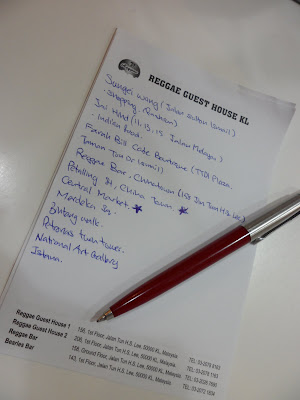 REGGAE GUEST HOUSE KL
Sungei wang (Jalan Sultan Ismail)
- Shopping, Random
Jai Hind (11, 13, 15 Jalan Melayu)
- Indian food.
Farrah Bill Cafe (TTDI Plaza
Taman Tun Dr Ismail)
Reggae Bar, Chinatown (158 Jln Tun H.S. Lee)
Petaling St, China Town
Central Market
Merdeka Sq.
Bintang walk.
Petronas twin tower.
National Art Gallery
Istana.
Reggae Guest House 1 156, 1st Floor, Jalan Tun H.S. Lee, 50000 KL, Malaysia
Reggae Guest House 2 206, 1st Floor, Jalan Tun H.S. Lee, 50000 KL, Malaysia
Reggae Bar 158, Ground Floor, Jalan Tun H.S. Lee, 50000 KL, Malaysia
Beatles Bar 143, 1st Floor, Jalan Tun H.S. Lee, 50000 KL, Malaysia